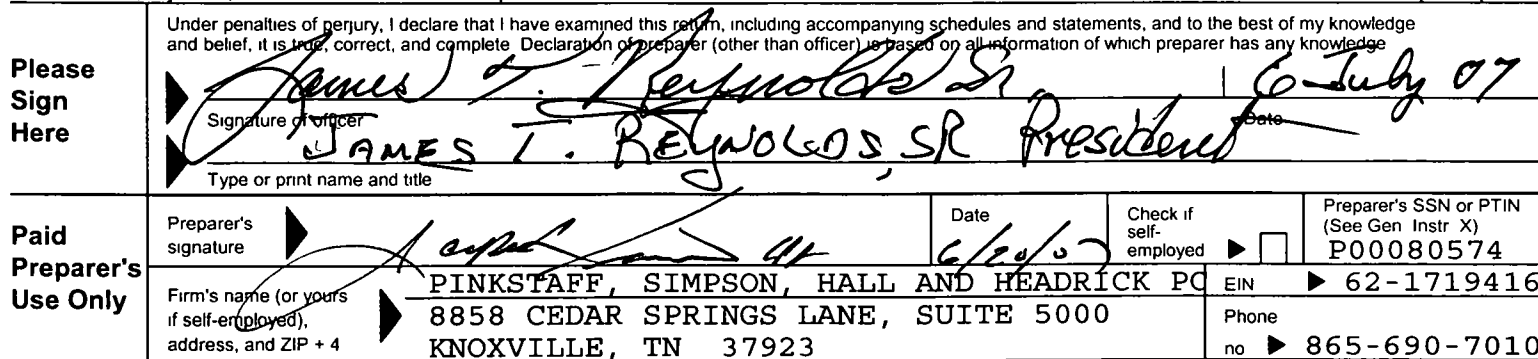 Under penalties of perjury, I declare that I have examined this return, including accompanying schedules and statements, and to the best of my knowledge
and belief, it is true, correct, and complete Declaration of preparer (other than officer) is based on all information of which preparer has any knowledge
Please
Sign
Here
James T. Reynolds Sr 6 July 07
Signature of officer Date
JAMES T. REYNOLDS, SR President
Type or print name and title
Paid
Preparer's
Use Only
Preparer's
signature
Date
6/20/07
Check if
self-
employed
Preparer's SSN or PTIN
(See Gen Instr X)
P00080574
Firm's name (or yours
if self-employed),
address, and ZIP + 4
PINKSTAFF, SIMPSON, HALL AND HEADRICK PC
8858 CEDAR SPRINGS LANE, SUITE 5000
KNOXVILLE, TN 37923
EIN 62-1719416
Phone
no 865-690-7010